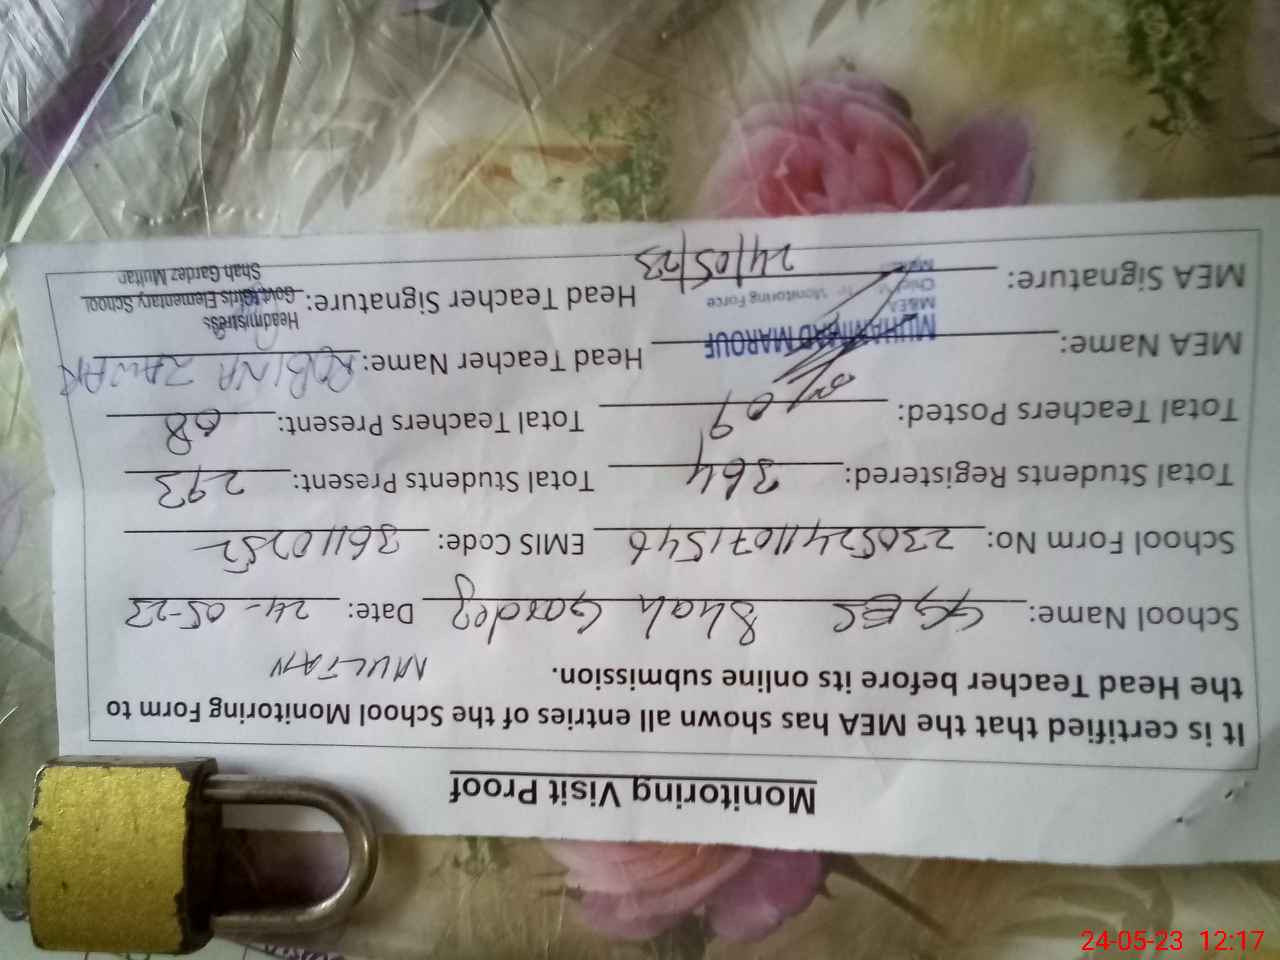 Monitoring Visit Proof
It is certified that the MEA has shown all entries of the School Monitoring Form to
the Head Teacher before its online submission. MULTAN
School Name: GGES Shah Gardez Date: 24-05-23
School Form No: 23052411071546 EMIS Code: 36110252
Total Students Registered: 364 Total Students Present: 293
Total Teachers Posted: 09 Total Teachers Present: 08
MEA Name: MUHAMMAD MAROUF Head Teacher Name: ROBINA ZAWAR
M&EA
Monitoring Force
Headmistress
Govt. Girls Elementary School
Shah Gardez Multan
MEA Signature: 24/05/23 Head Teacher Signature:
24-05-23 12:17